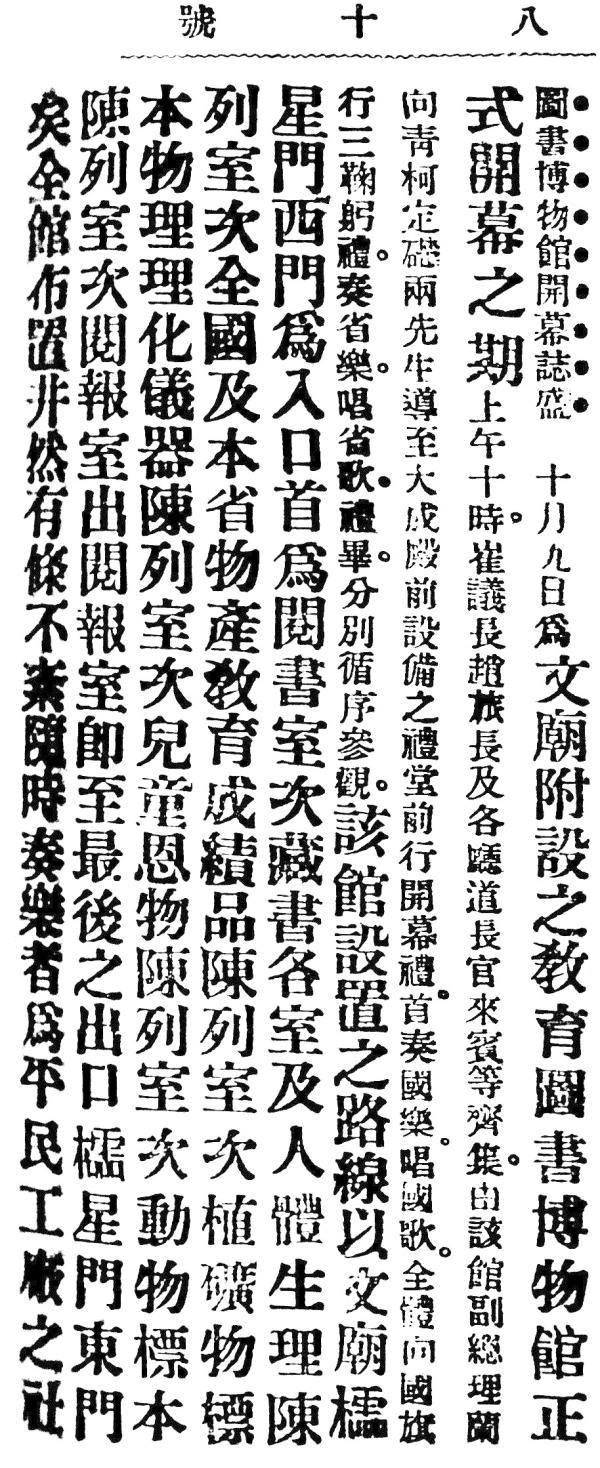 號十八
圖書博物館開幕誌盛　十月九日爲文廟附設之教育圖書博物館正
式開幕之期上午十時。崔議長趙旅長及各廳道長官來賓等齊集。由該館副總理蘭
向青柯定礎兩先生導至大成殿前設備之禮堂前行開幕禮。首奏國樂。唱國歌。全體向國旗
行三鞠躬禮。奏省樂。唱省歌。禮畢。分別循序參觀。該館設置之路線以文廟櫺
星門西門爲入口首爲閱書室次藏書各室及人體生理陳
列室次全國及本省物產教育成績品陳列室次植礦物標
本物理理化儀器陳列室次兒童恩物陳列室次動物標本
陳列室次閱報室出閱報室即至最後之出口櫺星門東門
矣全館布置井然有條不紊隨時奏樂者爲平民工廠之社